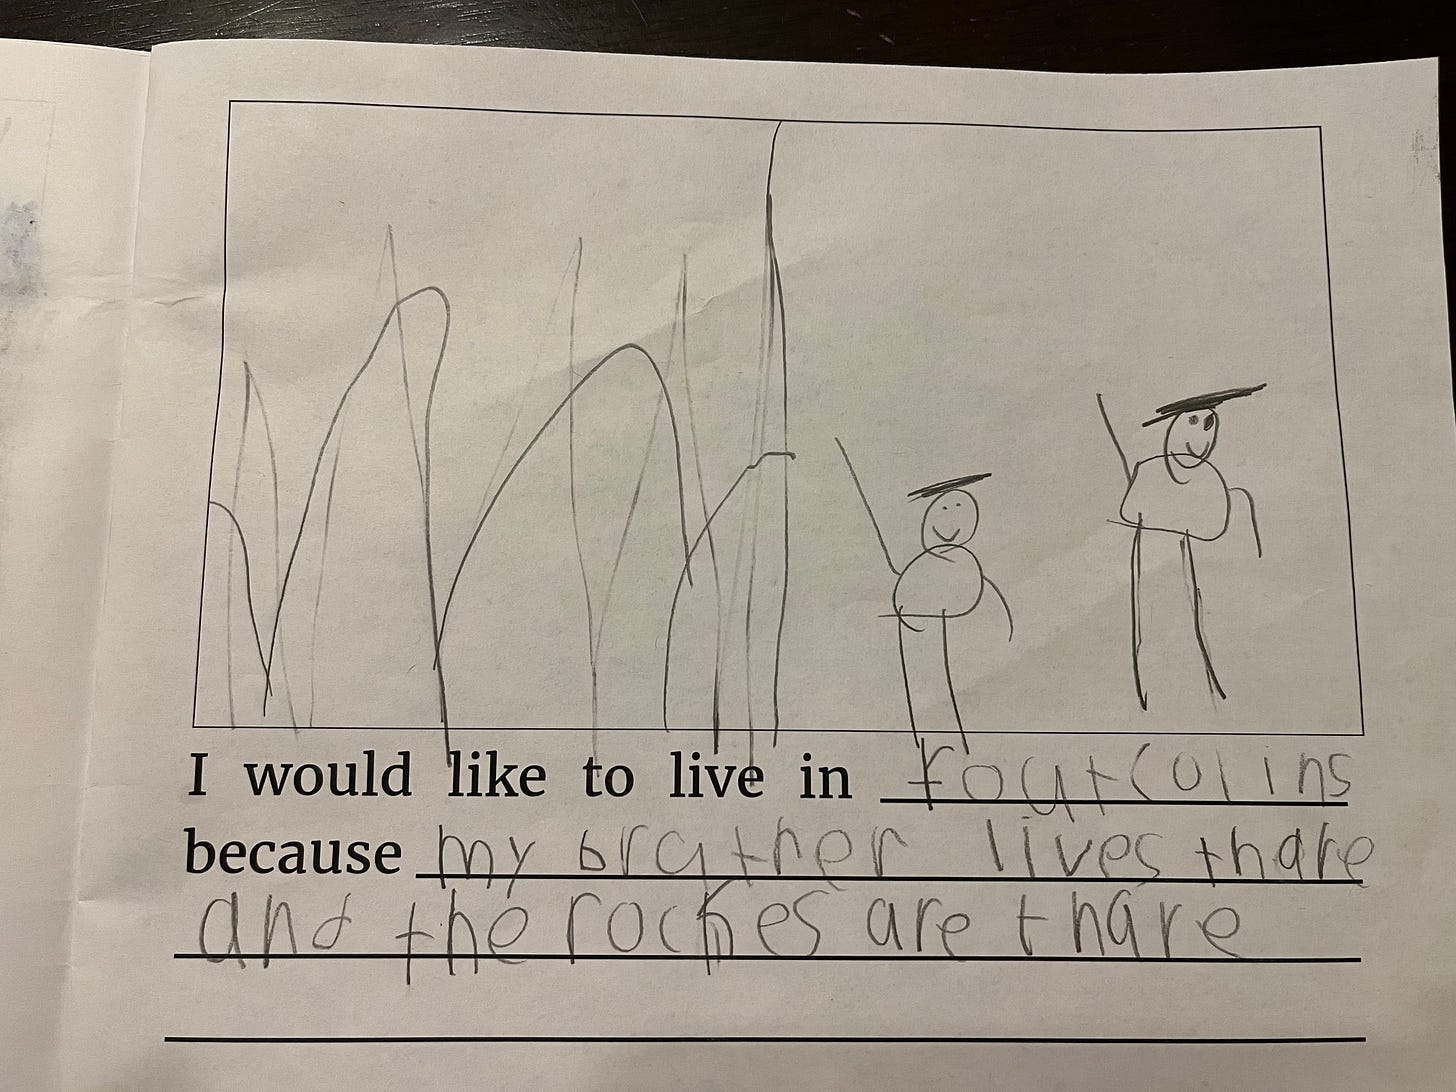 I would like to live in fourtcolins
because my brather lives thare
and the rockes are thare